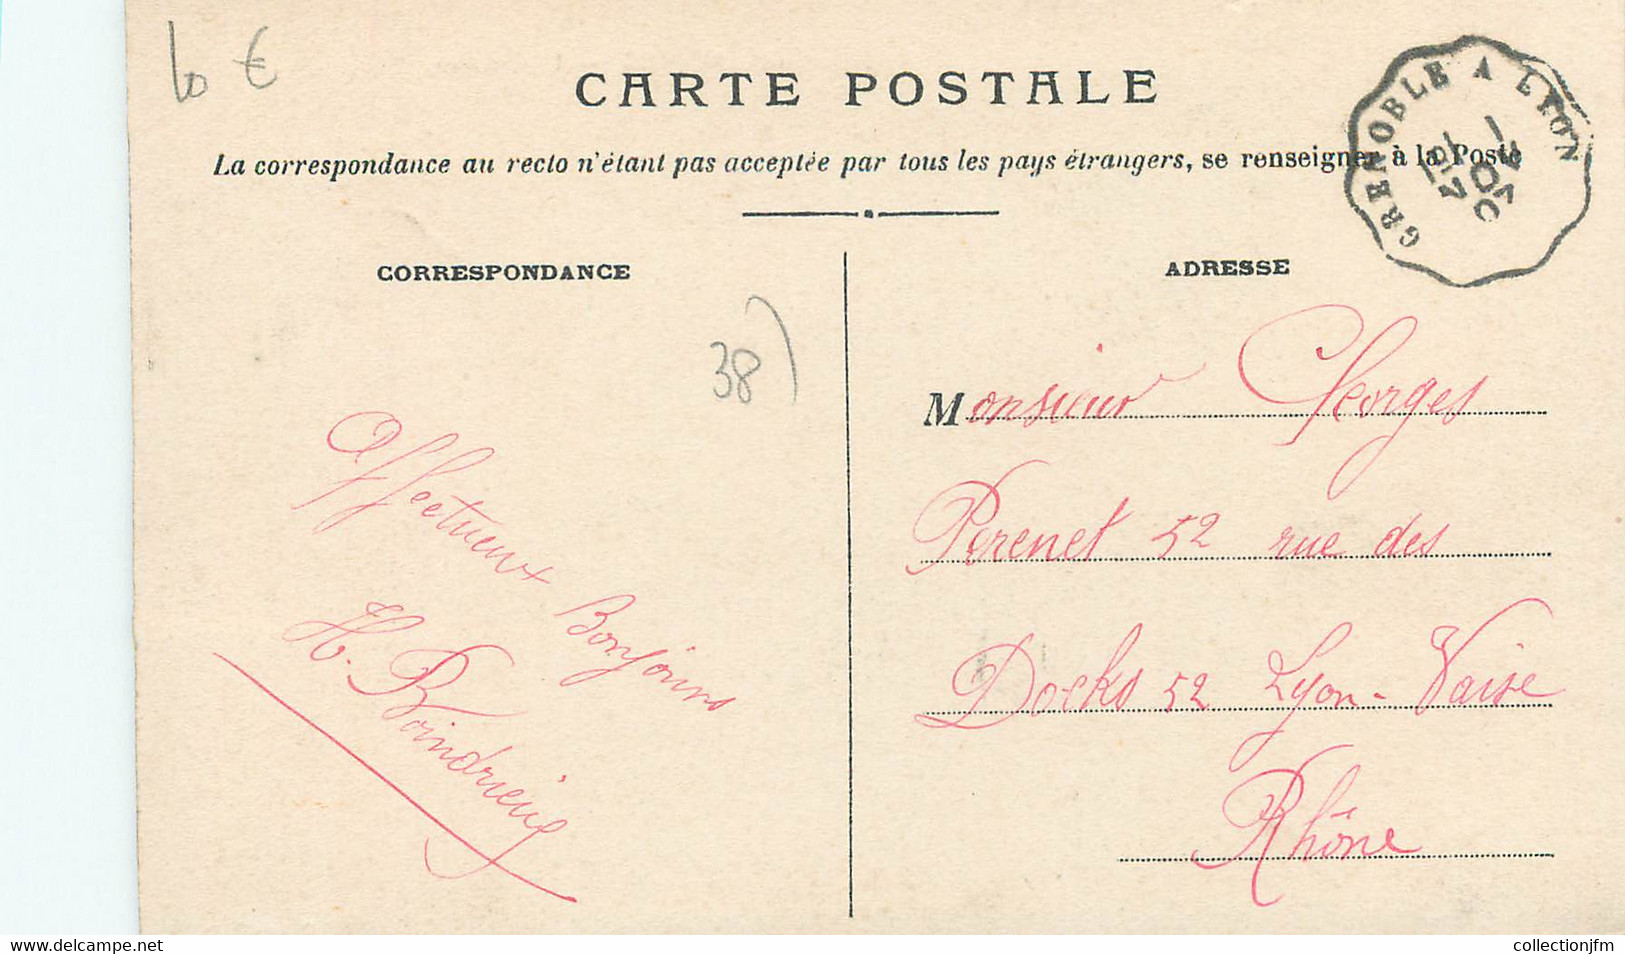 10 €
CARTE POSTALE
La correspondance au recto n'étant pas acceptée par tous les pays étrangers, se renseigner à la Poste
GRENOBLE A LYON
CORRESPONDANCE
ADRESSE
38)
Affectueux Bonjours
Monsieur Georges
Perenet 52 rue des
Docks 52 Lyon-Vaise
Rhône
www.delcampe.net
collectionjfm